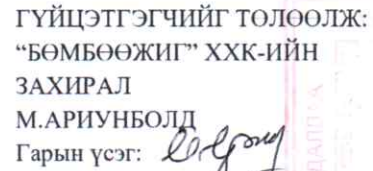 ГҮЙЦЭТГЭГЧИЙГ ТӨЛӨӨЛЖ:
“БӨМБӨӨЖИГ” ХХК-ИЙН
ЗАХИРАЛ
М.АРИУНБОЛД
Гарын үсэг: